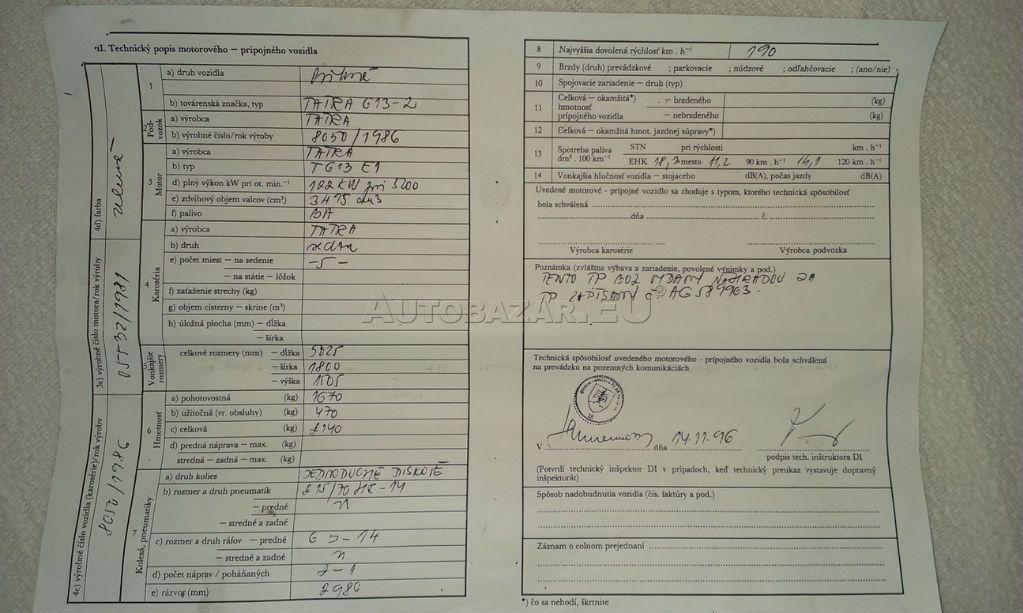 II. Technický popis motorového – prípojného vozidla
1
a) druh vozidla
b) továrenská značka, typ TATRA 613-2
2 Podvozok
a) výrobca TATRA
b) výrobné číslo/rok výroby 8050/1986
3 Motor
a) výrobca TATRA
b) typ T613 E1
d) plný výkon kW pri ot. min.⁻¹ 122 kW pri 5200
e) zdvihový objem valcov (cm³) 3495 cm3
f) palivo BA
4 Karoséria
a) výrobca TATRA
b) druh sedan
e) počet miest — na sedenie –5–
— na státie – lôžok
f) zaťaženie strechy (kg)
g) objem cisterny – skrine (m³)
h) úložná plocha (mm) – dĺžka
– šírka
5 Vonkajšie rozmery
celkové rozmery (mm) – dĺžka 5025
– šírka 1800
– výška 1505
6 Hmotnosť
a) pohotovostná (kg) 1670
b) užitočná (vr. obsluhy) (kg) 470
c) celková (kg) 2140
d) predná náprava – max. (kg)
stredná – zadná – max. (kg)
7 Kolesá, pneumatiky
a) druh kolies JEDNODUCHÉ DISKOVÉ
b) rozmer a druh pneumatík 215/70 HR-14
– predné "
– stredné a zadné
c) rozmer a druh ráfov – predné 6 J-14
– stredné a zadné "
d) počet náprav / poháňaných 2-1
e) rázvor (mm) 2980
4d) farba zelená
3c) výrobné číslo motora/rok výroby /1981
4c) výrobné číslo vozidla (karosérie)/rok výroby 8050/1986
8 Najvyššia dovolená rýchlosť km . h⁻¹ 190
9 Brzdy (druh) prevádzkové ; parkovacie ; núdzové ; odľahčovacie ; (ano/nie)
10 Spojovacie zariadenie – druh (typ)
11 Celková – okamžitá*) – brzdeného (kg)
hmotnosť
prípojného vozidla – nebrzdeného (kg)
12 Celková – okamžitá hmot. jazdnej súpravy*)
13 Spotreba paliva STN pri rýchlosti km . h⁻¹
dm³ . 100 km⁻¹ EHK 18,2 mesto 11,2 90 km . h⁻¹ 14,1 120 km . h⁻¹
14 Vonkajšia hlučnosť vozidla – stojaceho dB(A), počas jazdy dB(A)
Uvedené motorové - prípojné vozidlo sa zhoduje s typom, ktorého technická spôsobilosť
bola schválená
dňa č.
Výrobca karosérie Výrobca podvozka
Poznámka (zvláštna výbava a zariadenie, povolené výnimky a pod.)
TENTO TP BOL VYDANÝ NÁHRADOU ZA
TP ZAPÍSANÝ Č. AG 589903.
AUTOBAZAR.EU
Technická spôsobilosť uvedeného motorového - prípojného vozidla bola schválená
na prevádzku na pozemných komunikáciách
V dňa 14.11.96
podpis tech. inštruktora DI
(Potvrdí technický inšpektor DI v prípadoch, keď technický preukaz vystavuje dopravný
inšpektorát)
Spôsob nadobudnutia vozidla (čís. faktúry a pod.)
Záznam o colnom prejednaní
*) čo sa nehodí, škrtnite